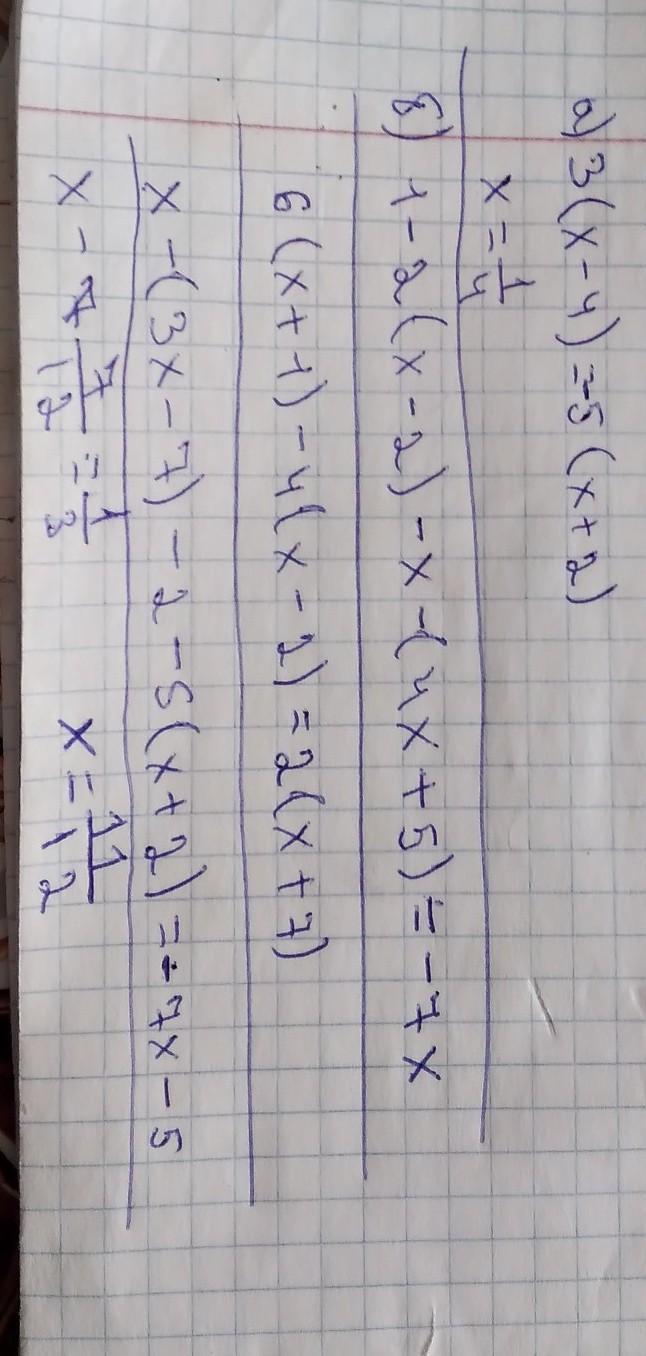 а) 3(x-4)=-5(x+2)
x=1/4
б) 1-2(x-2)-x-(4x+5)=-7x
6(x+1)-4(x-2)=2(x+7)
x-(3x-7)-2-5(x+2)=-7x-5
x-7/12=1/3 x=11/12